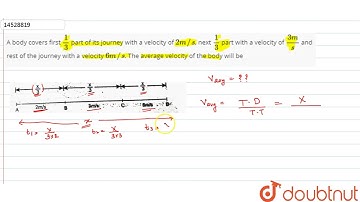 14528819
A body covers first 1/3 part of its journey with a velocity of 2m/s, next 1/3 part with a velocity of 3m/s and
rest of the journey with a velocity 6m/s. The average velocity of the body will be
Vavg = ??
(x/3) x/3 x/3
A 2m/s B 3m/s C 6m/s D
Vavg = T.D / T.T = x
x
t₁ = x/3×2 t₂ = x/3×3 t₃ =
doubtnut